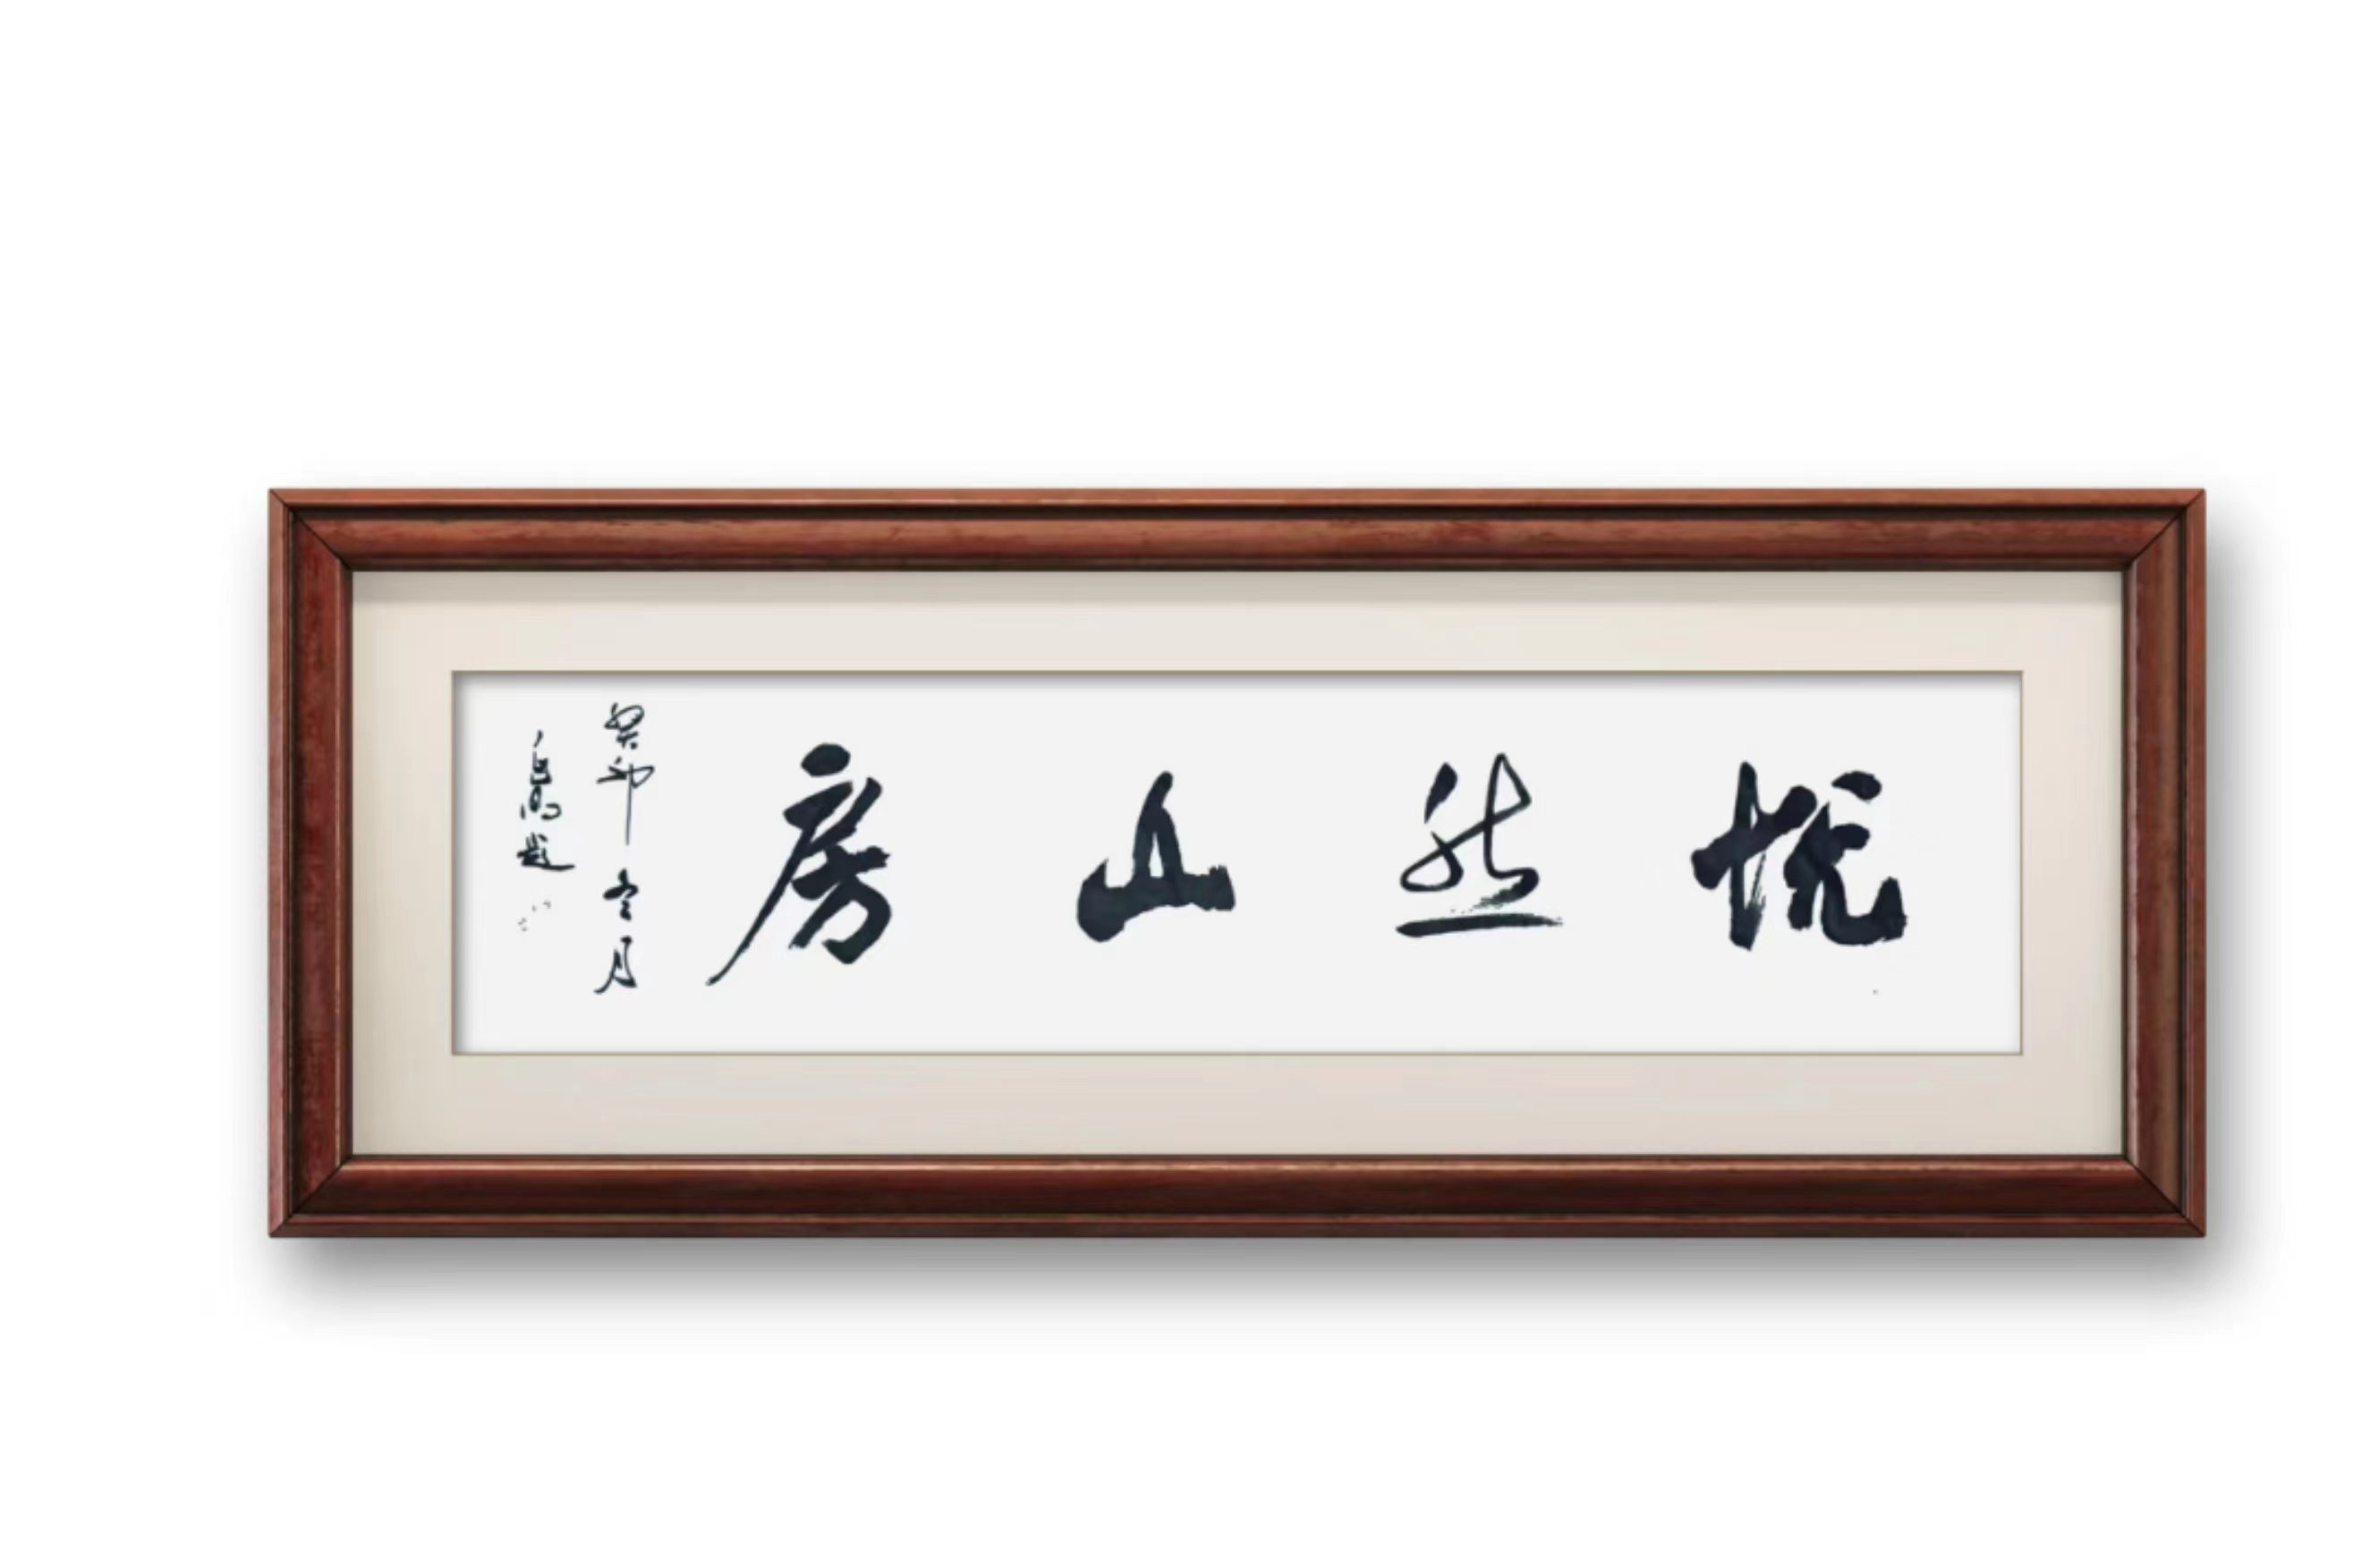 悦然山房
癸卯冬月
題